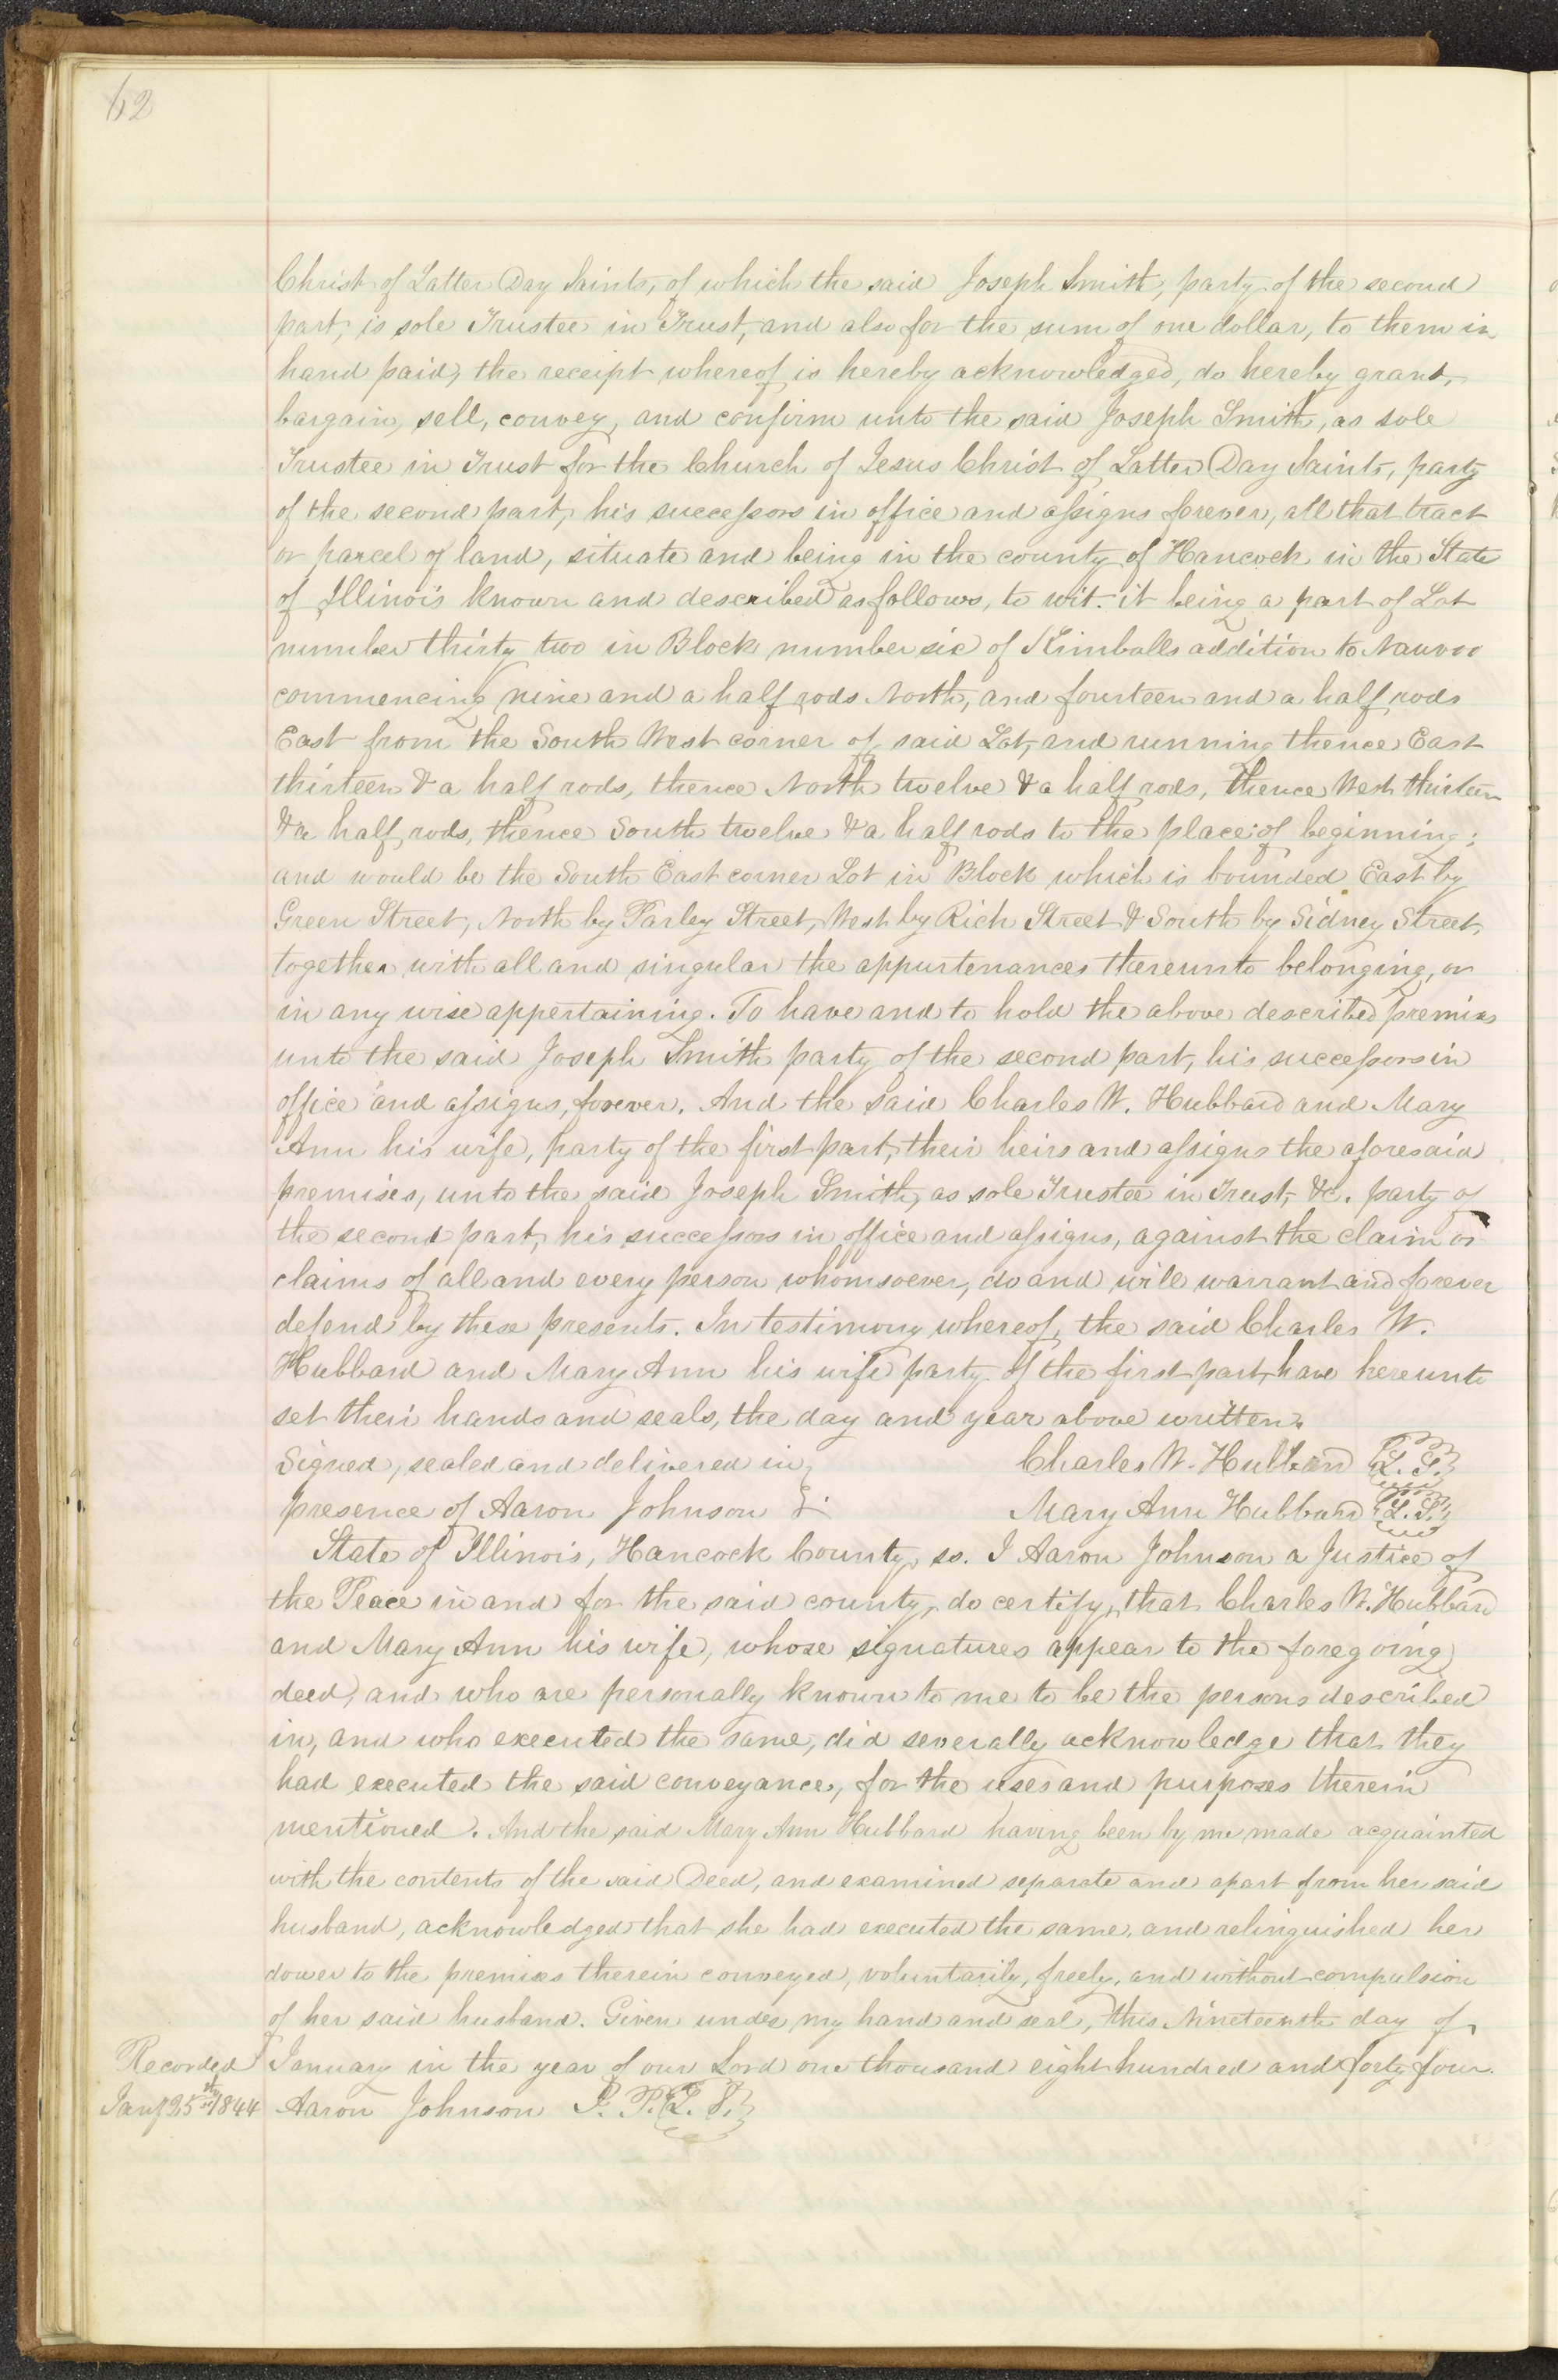 62
Christ of Latter Day Saints, of which the said Joseph Smith, party of the second
part, is sole Trustee in Trust, and also for the sum of one dollar, to them in
hand paid, the receipt whereof is hereby acknowledged, do hereby grant,
bargain, sell, convey, and confirm unto the said Joseph Smith, as sole
Trustee in Trust for the Church of Jesus Christ of Latter Day Saints, party
of the second part, his successors in office and assigns forever, all that tract
or parcel of land, situate and being in the county of Hancock in the State
of Illinois known and described as follows, to wit: it being a part of Lot
number thirty two in Block number six of Kimballs addition to Nauvoo
commencing nine and a half rods North, and fourteen and a half rods
East from the South West corner of said Lot, and running thence East
thirteen & a half rods, thence North twelve & a half rods, thence West thirteen
& a half rods, thence South twelve & a half rods to the place of beginning;
and would be the South East corner Lot in Block which is bounded East by
Green Street, North by Parley Street, West by Rich Street & South by Sidney Street,
together with all and singular the appurtenances thereunto belonging, or
in any wise appertaining. To have and to hold the above described premises
unto the said Joseph Smith party of the second part, his successors in
office and assigns, forever. And the said Charles W. Hubbard and Mary
Ann his wife, party of the first part, their heirs and assigns the aforesaid
premises, unto the said Joseph Smith, as sole Trustee in Trust, &c. party of
the second part, his successors in office and assigns, against the claim or
claims of all and every person whomsoever, do and will warrant and forever
defend by these presents. In testimony whereof, the said Charles W.
Hubbard and Mary Ann his wife party of the first part, have hereunto
set their hands and seals, the day and year above written.
Signed, sealed and delivered in Charles W. Hubbard L. S.
presence of Aaron Johnson Mary Ann Hubbard L. S.
State of Illinois, Hancock County, ss. I Aaron Johnson a Justice of
the Peace in and for the said county, do certify, that Charles W. Hubbard
and Mary Ann his wife, whose signatures appear to the foregoing
deed, and who are personally known to me to be the persons described
in, and who executed the same, did severally acknowledge that they
had executed the said conveyance, for the uses and purposes therein
mentioned. And the said Mary Ann Hubbard having been by me made acquainted
with the contents of the said Deed, and examined separate and apart from her said
husband, acknowledged that she had executed the same, and relinquished her
dower to the premises therein conveyed, voluntarily, freely, and without compulsion
of her said husband. Given under my hand and seal, this Nineteenth day of
Recorded January in the year of our Lord one thousand eight hundred and forty four.
Jany 25th 1844 Aaron Johnson J. P. L. S.